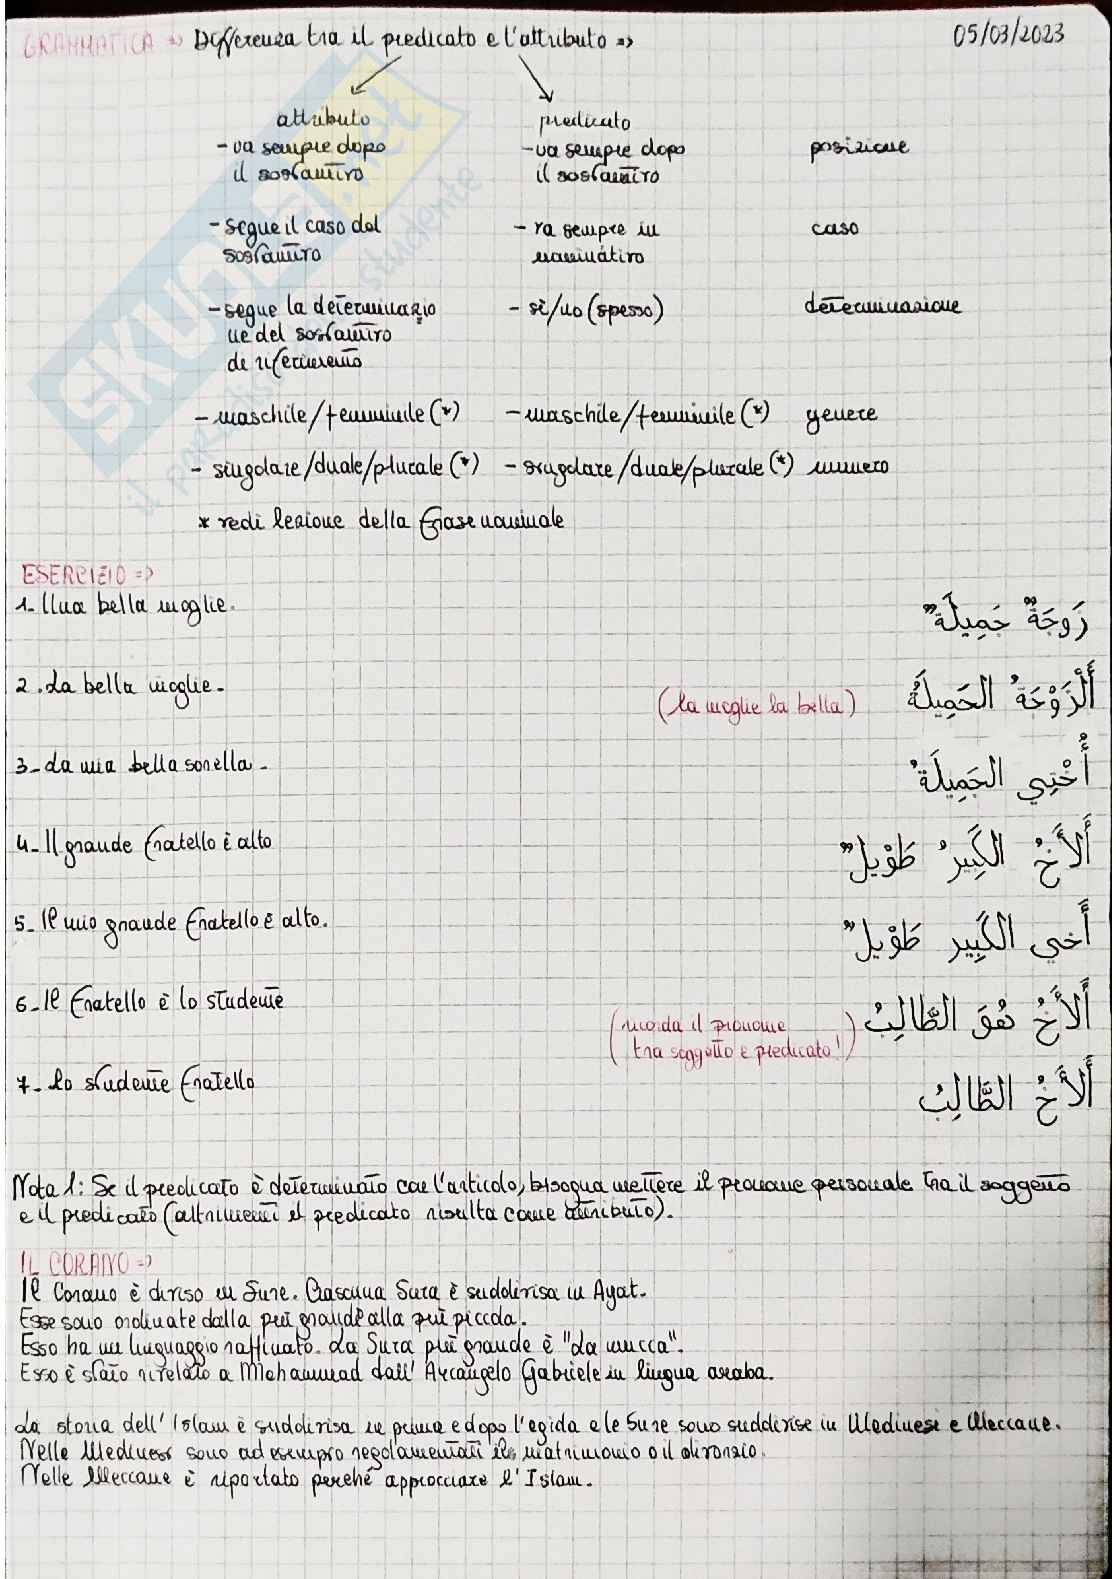 GRAMMATICA => Differenza tra il predicato e l'attributo => 05/03/2023
attributo predicato
- va sempre dopo - va sempre dopo posizione
il sostantivo il sostantivo
- segue il caso del - va sempre in caso
sostantivo nominativo
- segue la determinazio - sì/no (spesso) determinazione
ne del sostantivo
di riferimento
- maschile/femminile (*) - maschile/femminile (*) genere
- singolare/duale/plurale (*) - singolare/duale/plurale (*) numero
* vedi lezione della frase nominale
ESERCIZIO =>
1- Una bella moglie. زَوجَةٌ جَمِيلَةٌ
2. La bella moglie. (la moglie la bella) أَلْزَوْجَةُ الجَمِيلَةُ
3- La mia bella sorella. أُخْتِي الجَمِيلَةُ
4- Il grande fratello è alto أَلأَخُ الكَبِيرُ طَوْيلٌ
5- Il mio grande fratello è alto. أَخي الكَبِير طَوْيلٌ
6- Il fratello è lo studente (ricorda il pronome أَلأَخُ هُوَ الطَّالِبُ
tra soggetto e predicato!)
7- Lo studente fratello أَلأَخُ الطَّالِبُ
Nota 1: Se il predicato è determinato con l'articolo, bisogna mettere il pronome personale tra il soggetto
e il predicato (altrimenti il predicato risulta come attributo).
IL CORANO =>
Il Corano è diviso in Sure. Ciascuna Sura è suddivisa in Ayat.
Esse sono ordinate dalla più grande alla più piccola.
Esso ha un linguaggio raffinato. La Sura più grande è "La mucca".
Esso è stato rivelato a Mohammad dall' Arcangelo Gabriele in lingua araba.
La storia dell' Islam è suddivisa in prima e dopo l'egida e le Sure sono suddivise in Medinesi e Meccane.
Nelle Medinesi sono ad esempio regolamentati il matrimonio o il divorzio.
Nelle Meccane è riportato perché approcciare l'Islam.
SKUOLA.net
il paradiso dello studente